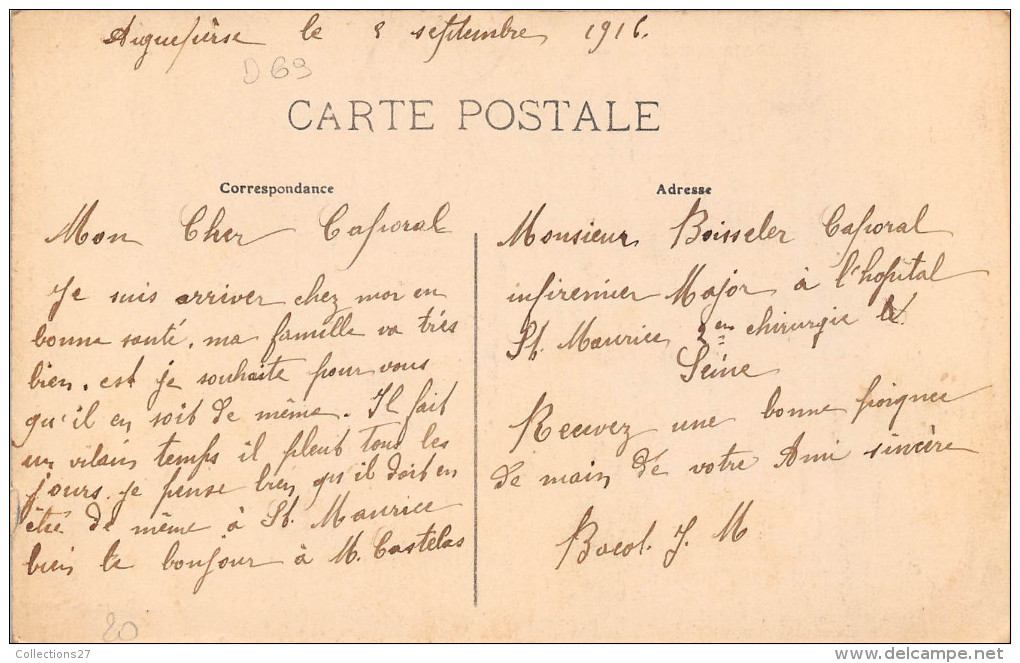 Aigueperse le 8 septembre 1916.
D 69
CARTE POSTALE
Correspondance
Mon Cher Caporal
Je suis arriver chez moi en
bonne santé, ma famille va très
bien. est je souhaite pour vous
qu'il en soit de même. Il fait
un vilain temps il pleut tous les
jours. je pense bien qu'il doit en
être de même à St. Maurice
bien le bonjour à M. Castelas
20
Adresse
Monsieur Boisseler Caporal
infiremier Major à l'hopital
St. Maurice 2em chirurgie
Seine
Recevez une bonne poignée
de main de votre Ami sincère
Bacot. J. M
Collections27
http://www.delcampe.net